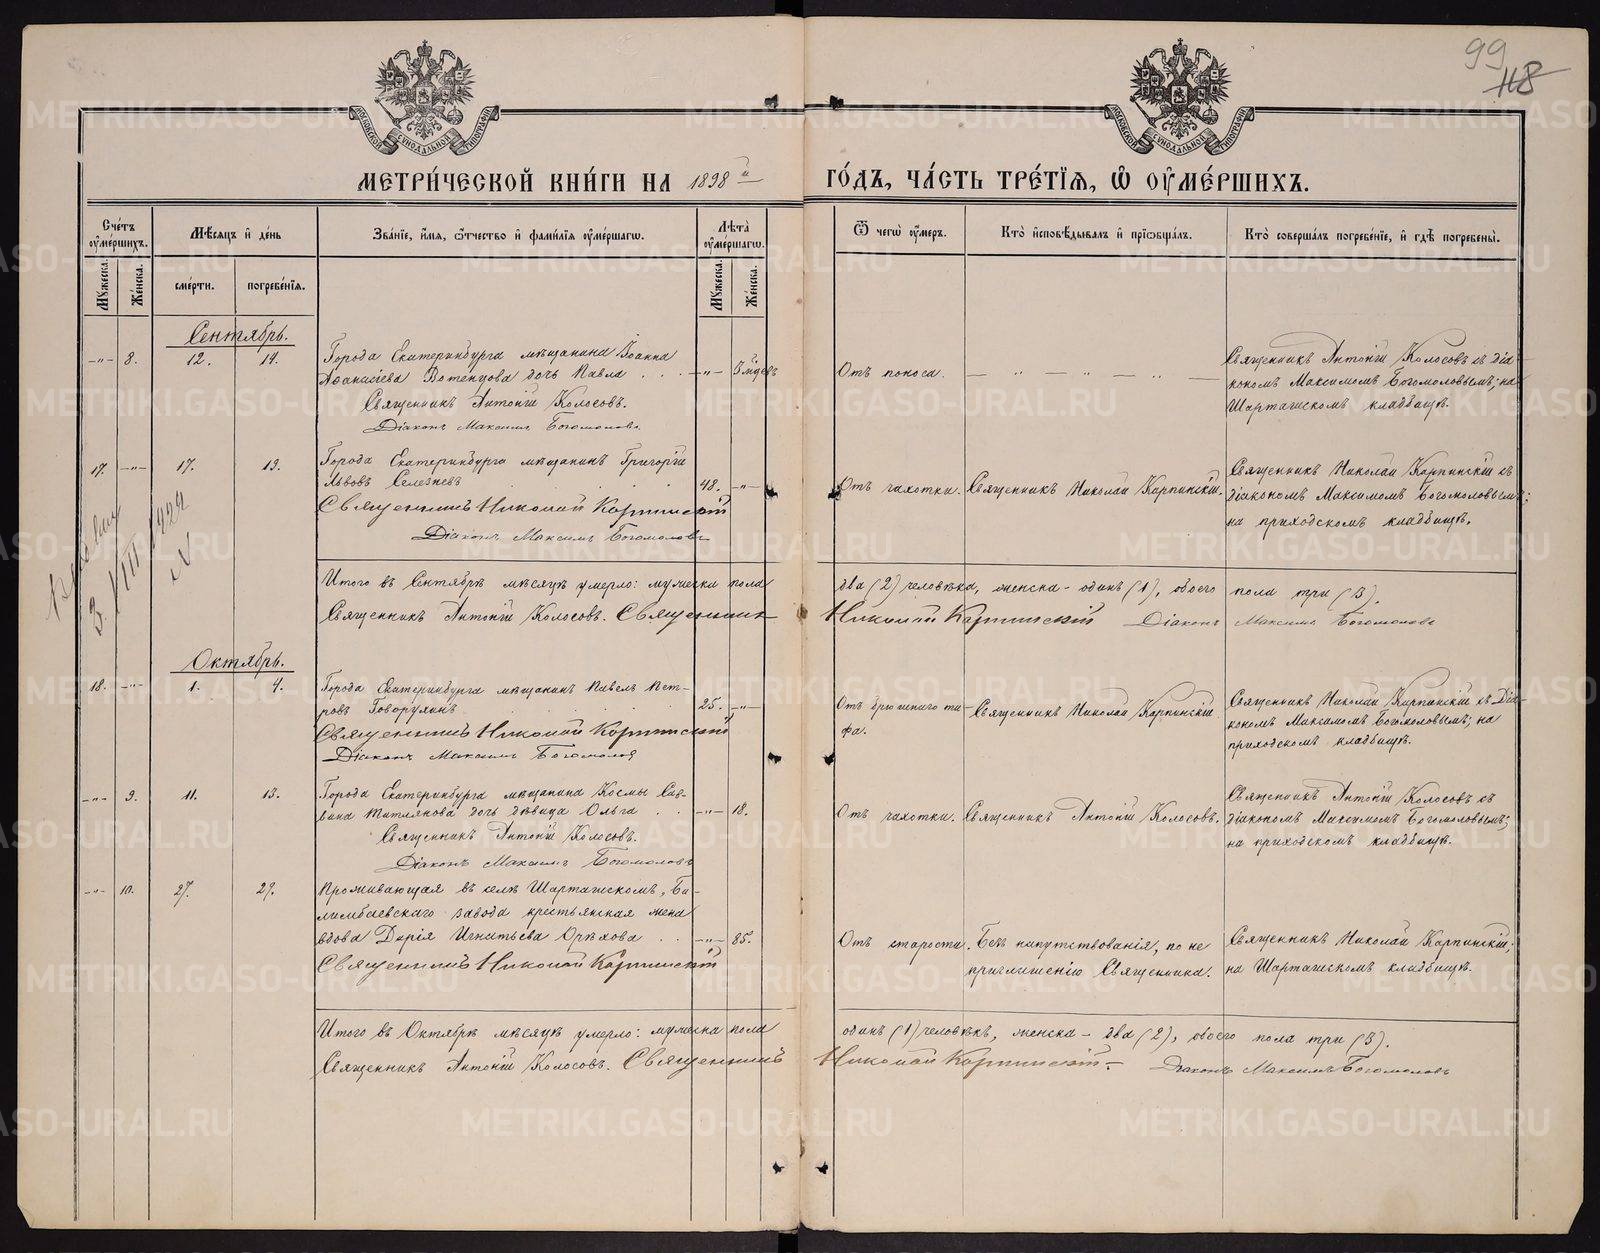 99
118
МОСКОВСКОЙ СѴНОДАЛЬНОЙ ТИПОГРАФІИ
МОСКОВСКОЙ СѴНОДАЛЬНОЙ ТИПОГРАФІИ
МЕТРИ́ЧЕСКОЙ КНИ́ГИ НА 1898й ГО́ДЪ, ЧА́СТЬ ТРЕ́ТЇѦ, Ѡ҆ ОУ҆МЕ́РШИХЪ.
Сче́тъ оу҆ме́ршихъ.
Мѣ́сяцъ и҆ де́нь
Зва́нїе, и҆́мѧ, ѻ҆́тчество и҆ фами́лїѧ оу҆ме́ршагѡ.
Лѣ̀та оу҆ме́ршагѡ.
Ѿ чегѡ̀ оу҆́меръ.
Кто̀ и҆сповѣ́дывалъ и҆ прїѡбща́лъ.
Кто̀ соверша́лъ погребе́нїе, и҆ гдѣ̀ погребены̀.
Мꙋ́жеска. Же́нска. сме́рти. погребе́нїѧ. Мꙋ́жеска. Же́нска.
Сентябрь.
—"— 8. 12. 14.
Города Екатеринбурга мѣщанина Іоанна
дочь Павла . . . —"— 3 недѣль
Священникъ Антоній Колосовъ.
Діаконъ Максимъ Богомоловъ
Отъ поноса. — " — " — " —
Священникъ Антоній Колосовъ съ діа-
кономъ Максимомъ Богомоловымъ; на
Шарташскомъ кладбищѣ.
17. —"— 17. 19.
Города Екатеринбурга мѣщанинъ Григорій
Львовъ Селезневъ . . . 48. —"—
Священникъ Николай Карпинскій
Діаконъ Максимъ Богомоловъ
Отъ чахотки. Священникъ Николай Карпинскій.
Священникъ Николай Карпинскій съ
діакономъ Максимомъ Богомоловымъ;
на приходскомъ кладбищѣ.
3/VIII-1922
Итого въ Сентябрѣ мѣсяцѣ умерло: мужеска пола два (2) человѣка, женска – одинъ (1), обоего пола три (3).
Священникъ Антоній Колосовъ. Священникъ Николай Карпинскій Діаконъ Максимъ Богомоловъ
Октябрь.
18. —"— 1. 4.
Города Екатеринбурга мѣщанинъ Павелъ Пет-
ровъ Говорухинъ . . . 25. —"—
Священникъ Николай Карпинскій
Діаконъ Максимъ Богомоловъ
Отъ брюшнаго ти-
фа.
Священникъ Николай Карпинскій
Священникъ Николай Карпинскій съ Діа-
кономъ Максимомъ Богомоловымъ; на
приходскомъ кладбищѣ.
—"— 9. 11. 13.
Города Екатеринбурга мѣщанина Космы Сав-
вина дочь дѣвица Ольга . . —"— 18.
Священникъ Антоній Колосовъ.
Діаконъ Максимъ Богомоловъ
Отъ чахотки. Священникъ Антоній Колосовъ.
Священникъ Антоній Колосовъ съ
діакономъ Максимомъ Богомоловымъ;
на приходскомъ кладбищѣ.
—"— 10. 27. 29.
Проживающая въ селѣ Шарташскомъ, Би-
лимбаевскаго завода крестьянская жена
вдова Дарія Игнатьева Орѣхова . . —"— 85.
Священникъ Николай Карпинскій
Отъ старости. Безъ напутствованія, по не
приглашенію Священника.
Священникъ Николай Карпинскій;
на Шарташскомъ кладбищѣ.
Итого въ Октябрѣ мѣсяцѣ умерло: мужеска пола одинъ (1) человѣкъ, женска – два (2), обоего пола три (3).
Священникъ Антоній Колосовъ. Священникъ Николай Карпинскій. Діаконъ Максимъ Богомоловъ
METRIKI.GASO-URAL.RU